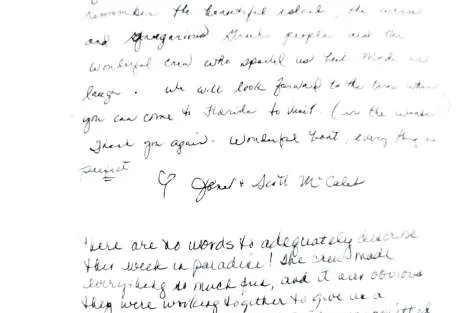 remember the beautiful island, the warm
and gregarious Greek people and our
wonderful crew who spoiled us but made us
laugh. We will look forward to the time when
you can come to Florida to visit. (in the winter)
Thank you again. Wonderful boat, everything is
perfect
♡ Janet + Scott McCaleb
There are no words to adequately describe
this week in paradise! The crew made
everything so much fun, and it was obvious
they were working together to give us a